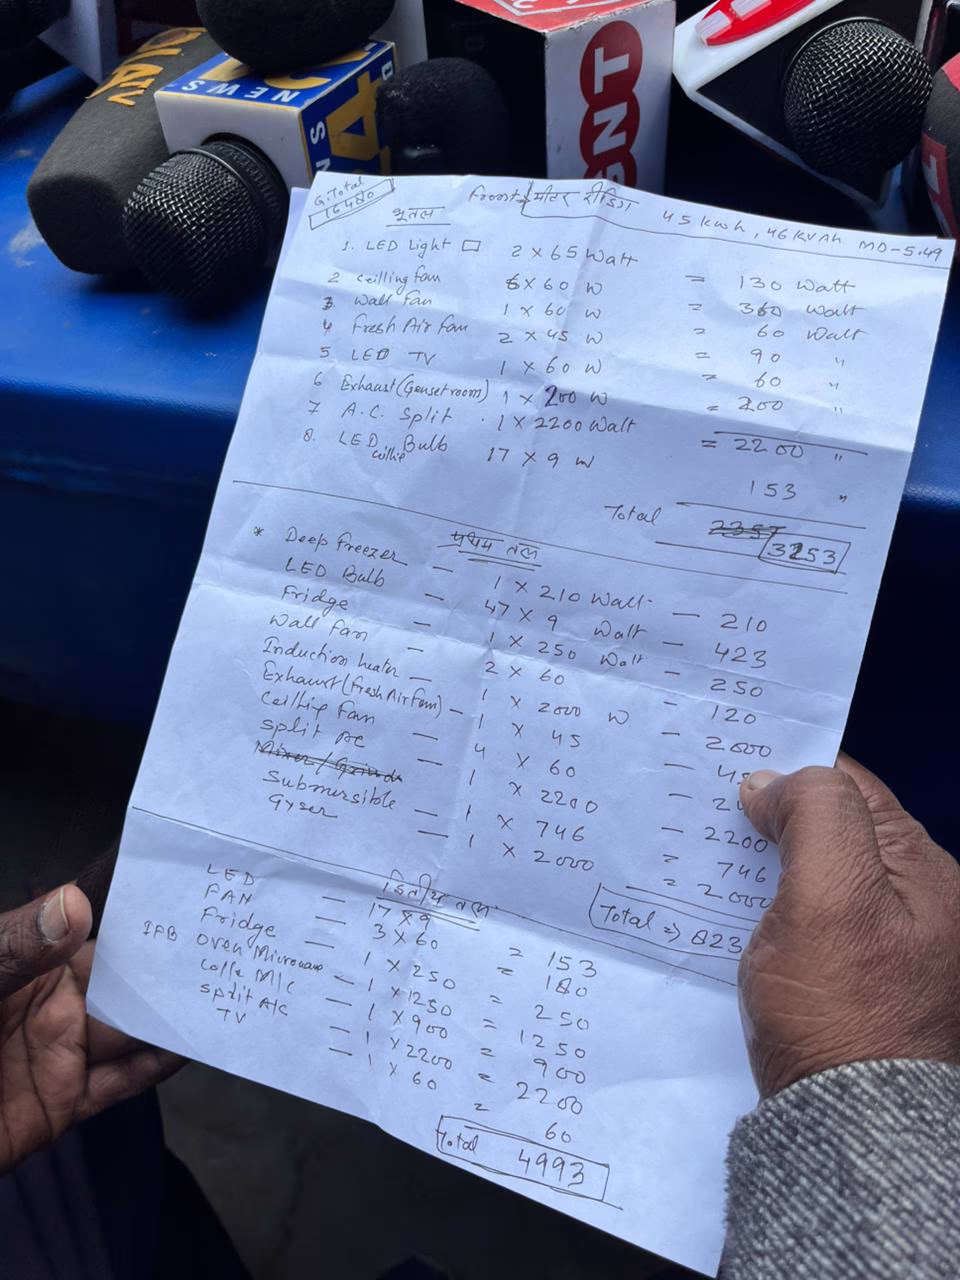 NEWS
SNT
G.Total
16480
Front मीटर रीडिंग 45 kwh, 46 KVAh MD-5.49
भूतल
1. LED Light 2 x 65 Watt = 130 Watt
2 Ceilling fan 6 x 60 W = 360 Watt
3. Wall Fan 1 x 60 W = 60 Watt
4 Fresh Air Fan 2 x 45 W = 90 "
5 LED TV 1 x 60 W = 60 "
6 Exhaust (Genset room) 1 x 200 W = 200 "
7 A.C. Split 1 x 2200 Watt = 2200 "
8. LED Bulb 17 x 9 W 153 "
Total 2357 3253
* प्रथम तल
Deep Freezer — 1 x 210 Watt — 210
LED Bulb — 47 x 9 Watt — 423
Fridge — 1 x 250 Watt — 250
Wall Fan — 2 x 60 — 120
Induction heater — 1 x 2000 W — 2000
Exhaust (Fresh Air Fan) — 1 x 45 — 45
Ceilling Fan — 4 x 60 — 2
Split AC — 1 x 2200 — 2200
Mixer/Grinder
Submersible — 1 x 746 = 746
Gyser — 1 x 2000 = 2000
Total => 823
द्वितीय तल
LED — 17 x 9 = 153
FAN — 3 x 60 = 180
Fridge — 1 x 250 = 250
IFB Oven Microwave — 1 x 1250 = 1250
Coffe M/c — 1 x 900 = 900
Split A/c — 1 x 2200 = 2200
TV — 1 x 60 = 60
Total 4993